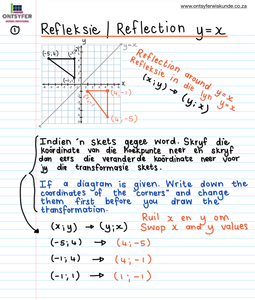 www.ontsyferwiskunde.co.za
ONTSYFER
① Refleksie / Reflection y=x
y
y=x
(-5;4)
(4;-1)
(4;-5)
Reflection around y=x
Refleksie in die lyn y=x
(x;y) → (y;x)
Indien 'n skets gegee word. Skryf die
koördinate van die hoekpunte neer en skryf
dan eers die veranderde koördinate neer voor
jy die transformasie skets.
If a diagram is given. Write down the
coordinates of the "corners" and change
them first before you draw the
transformation.
(x;y) → (y;x)
Ruil x en y om
Swop x and y values
(-5;4) → (4;-5)
(-1;4) → (4;-1)
(-1;1) → (1;-1)